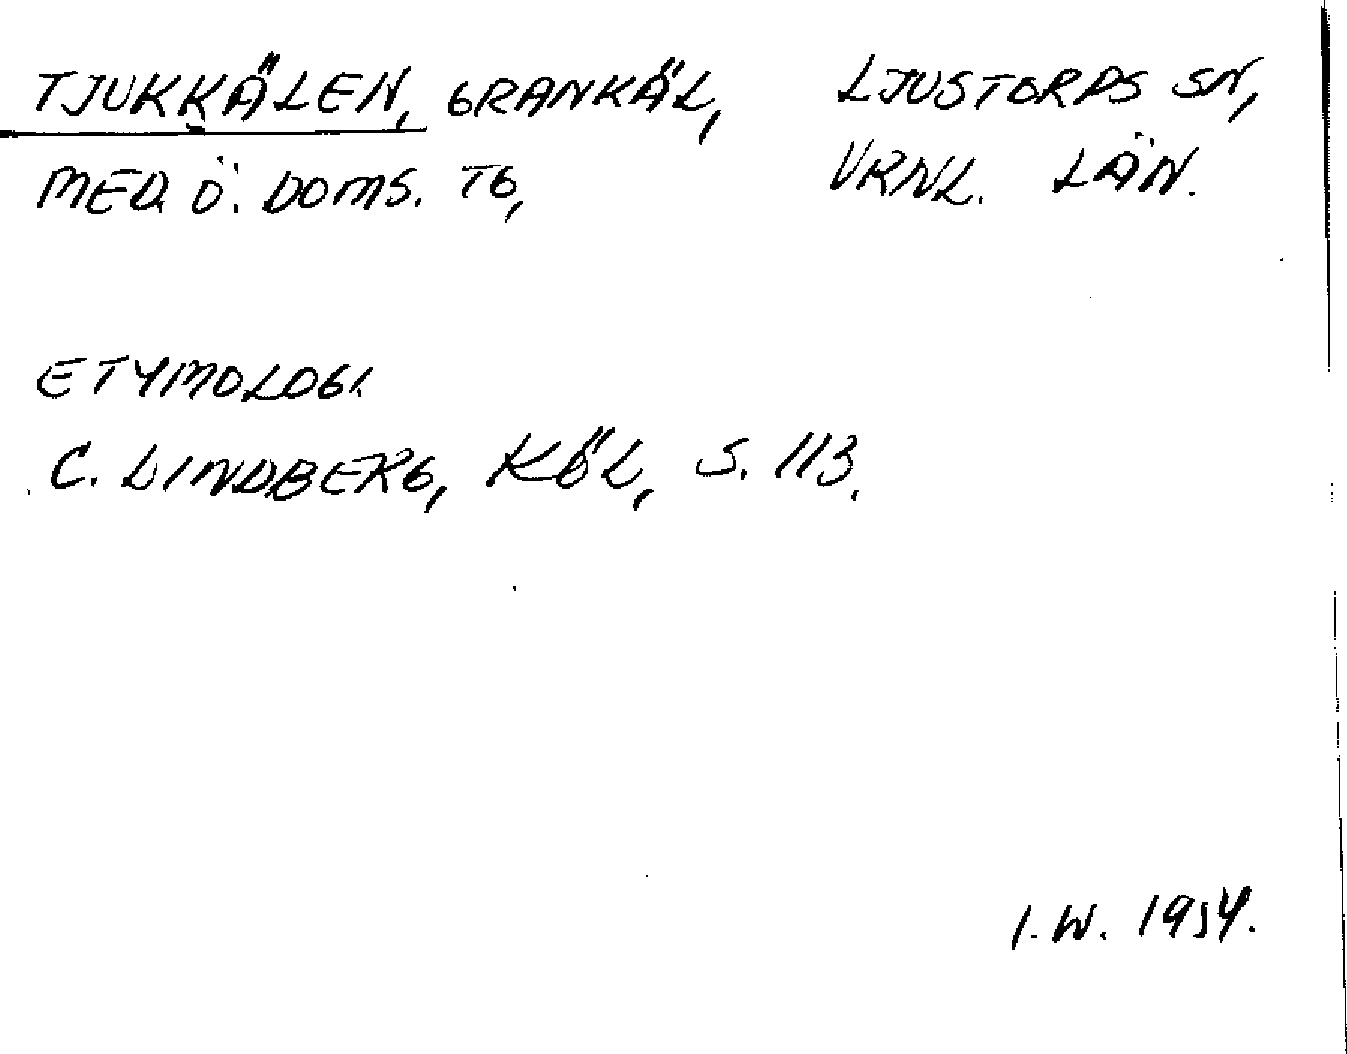 TJUKKÄLEN, GRANKÄL, LJUSTORPS SN,
MED. Ö. DOMS. TG, VRNL. LÄN.
ETYMOLOGI
C. LINDBERG, KÖL, S. 113.
I. W. 1954.